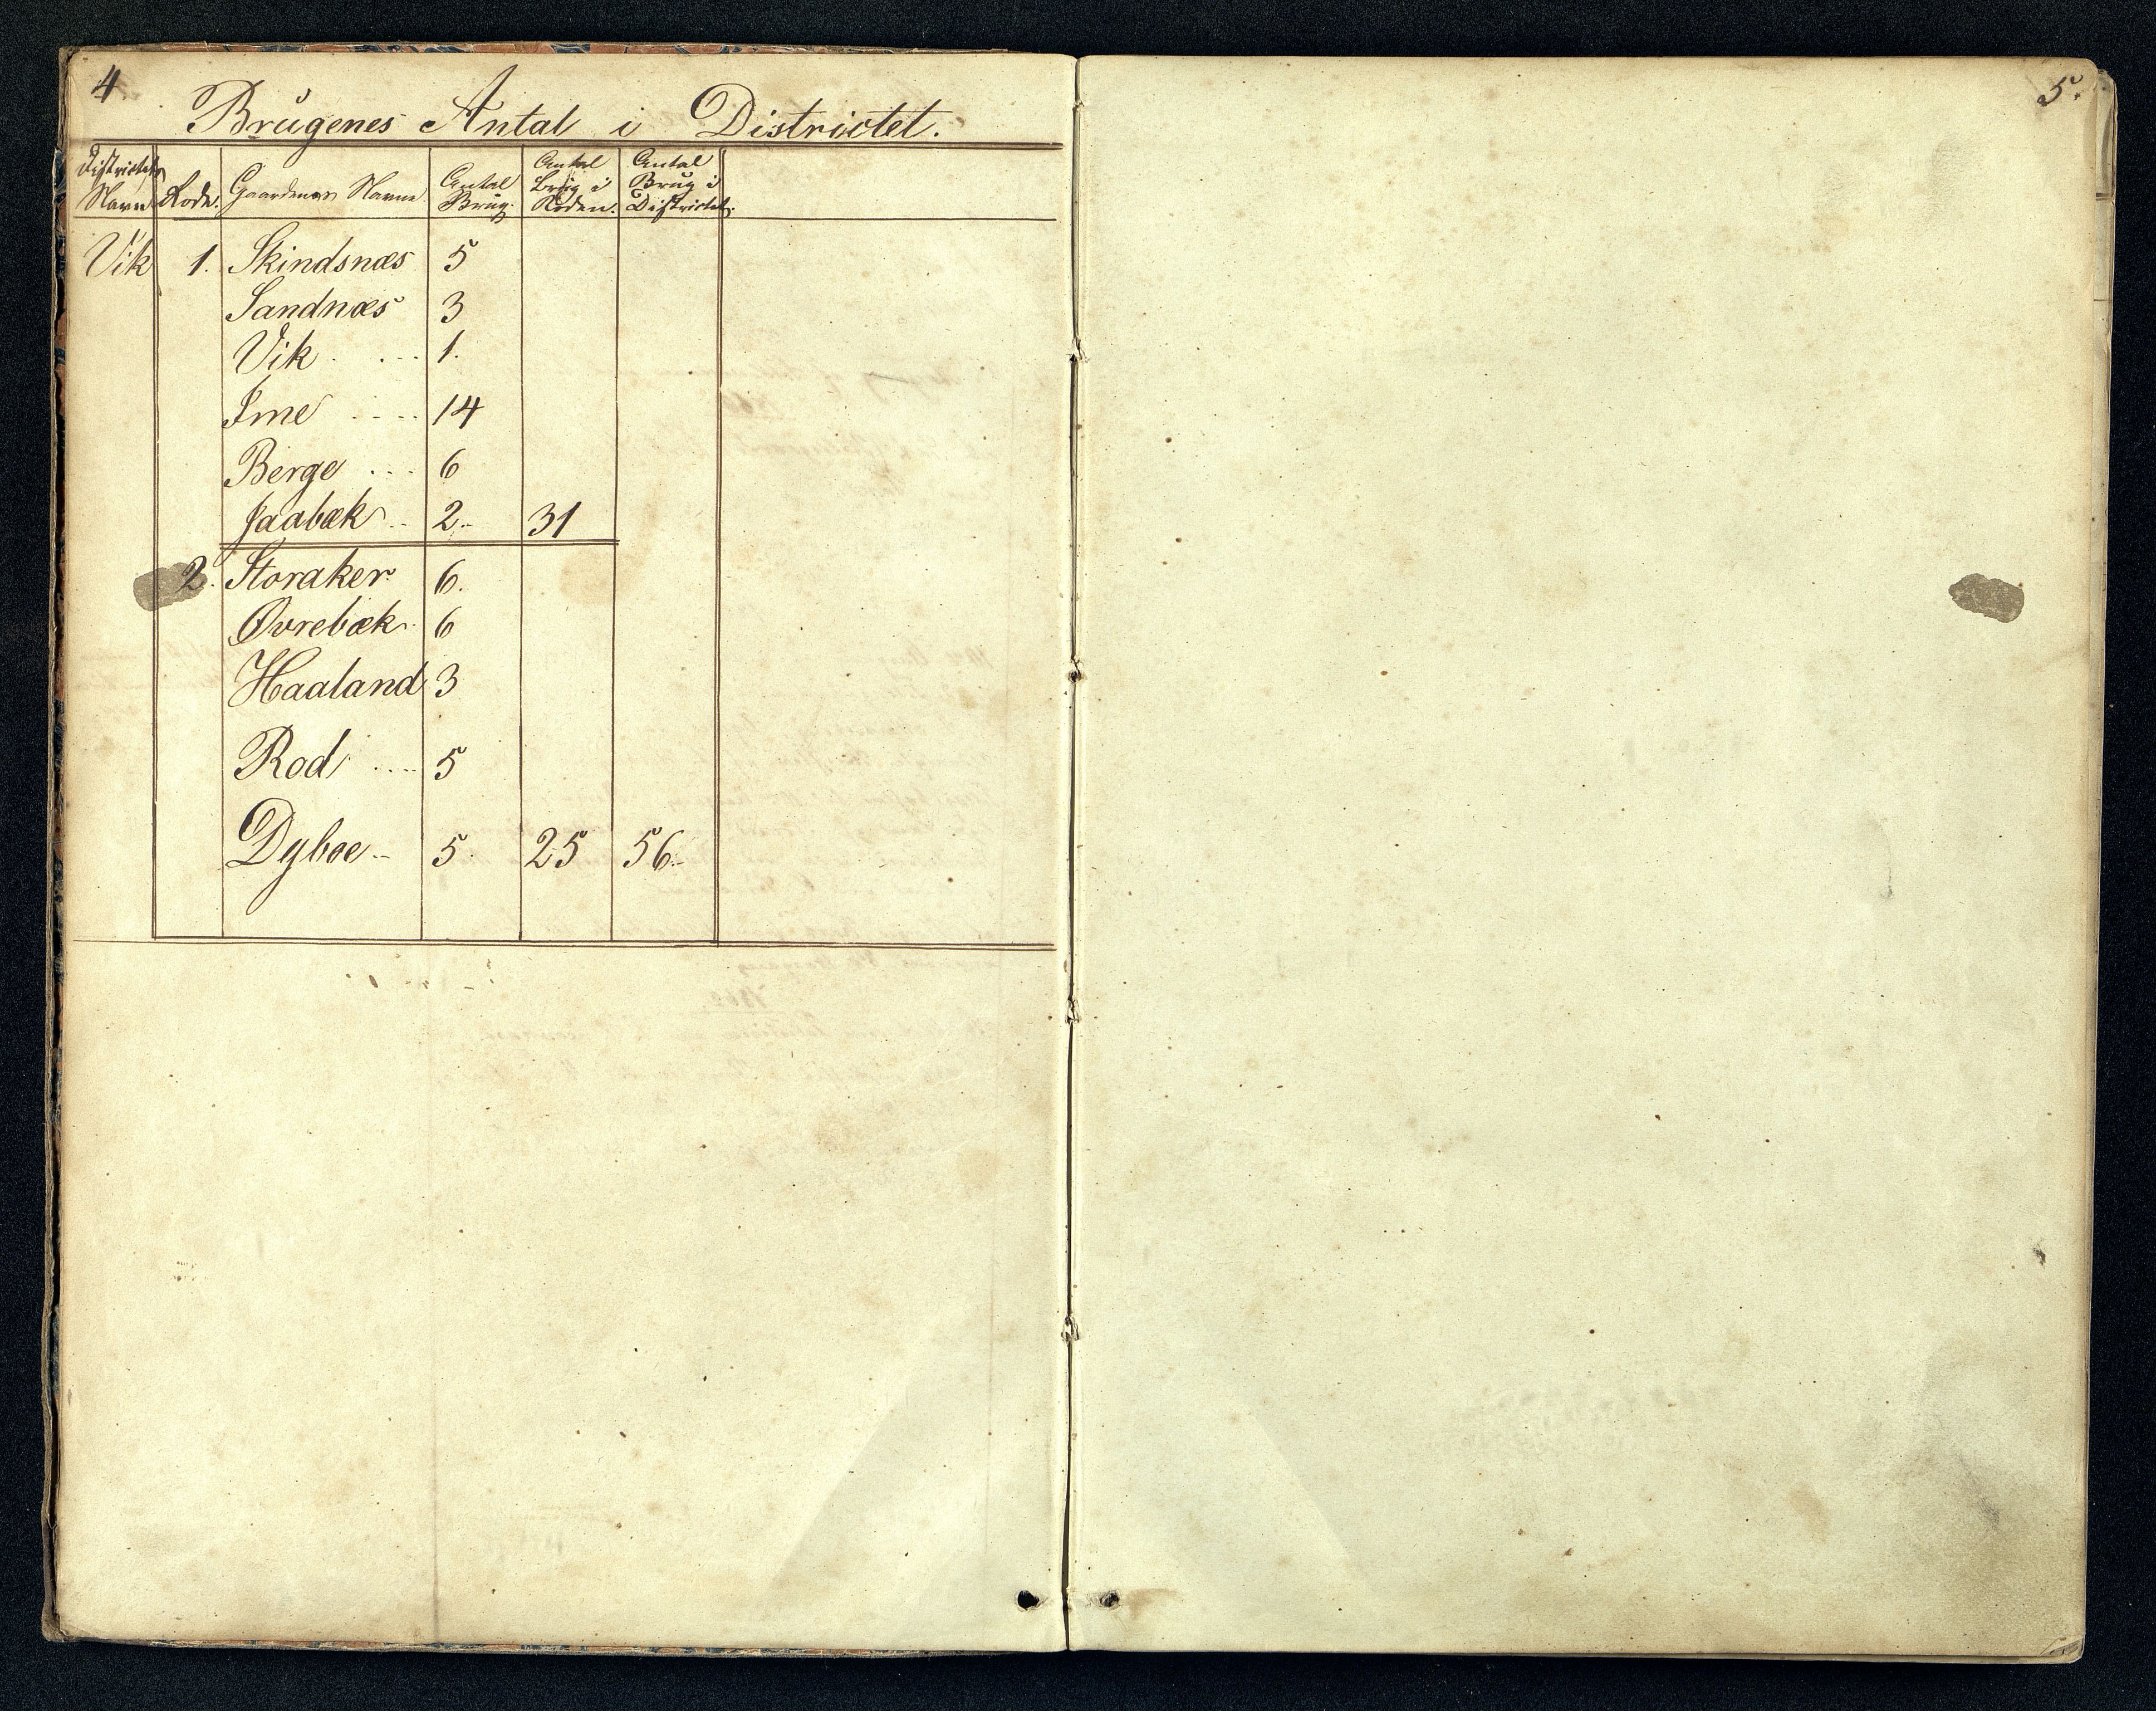 4
Brugenes Antal i Districtet.
Districtets Navn Rode. Gaardenes Navne Antal Brug. Antal Brug i Roden. Antal Brug i Districtet.
Vik 1. Skindsnæs 5
Sandnæs 3
Vik . . . . . 1.
Ime . . . . 14
Berge . . . 6
Jaabæk . . 2. 31
2. Storaker 6.
Øvrebæk 6
Haaland 3
Rød . . . . 5
Dyboe . . 5. 25 56.
5.